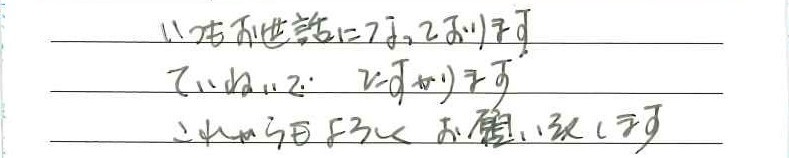 いつもお世話になっております
ていねいで たすかります
これからもよろしくお願い致します